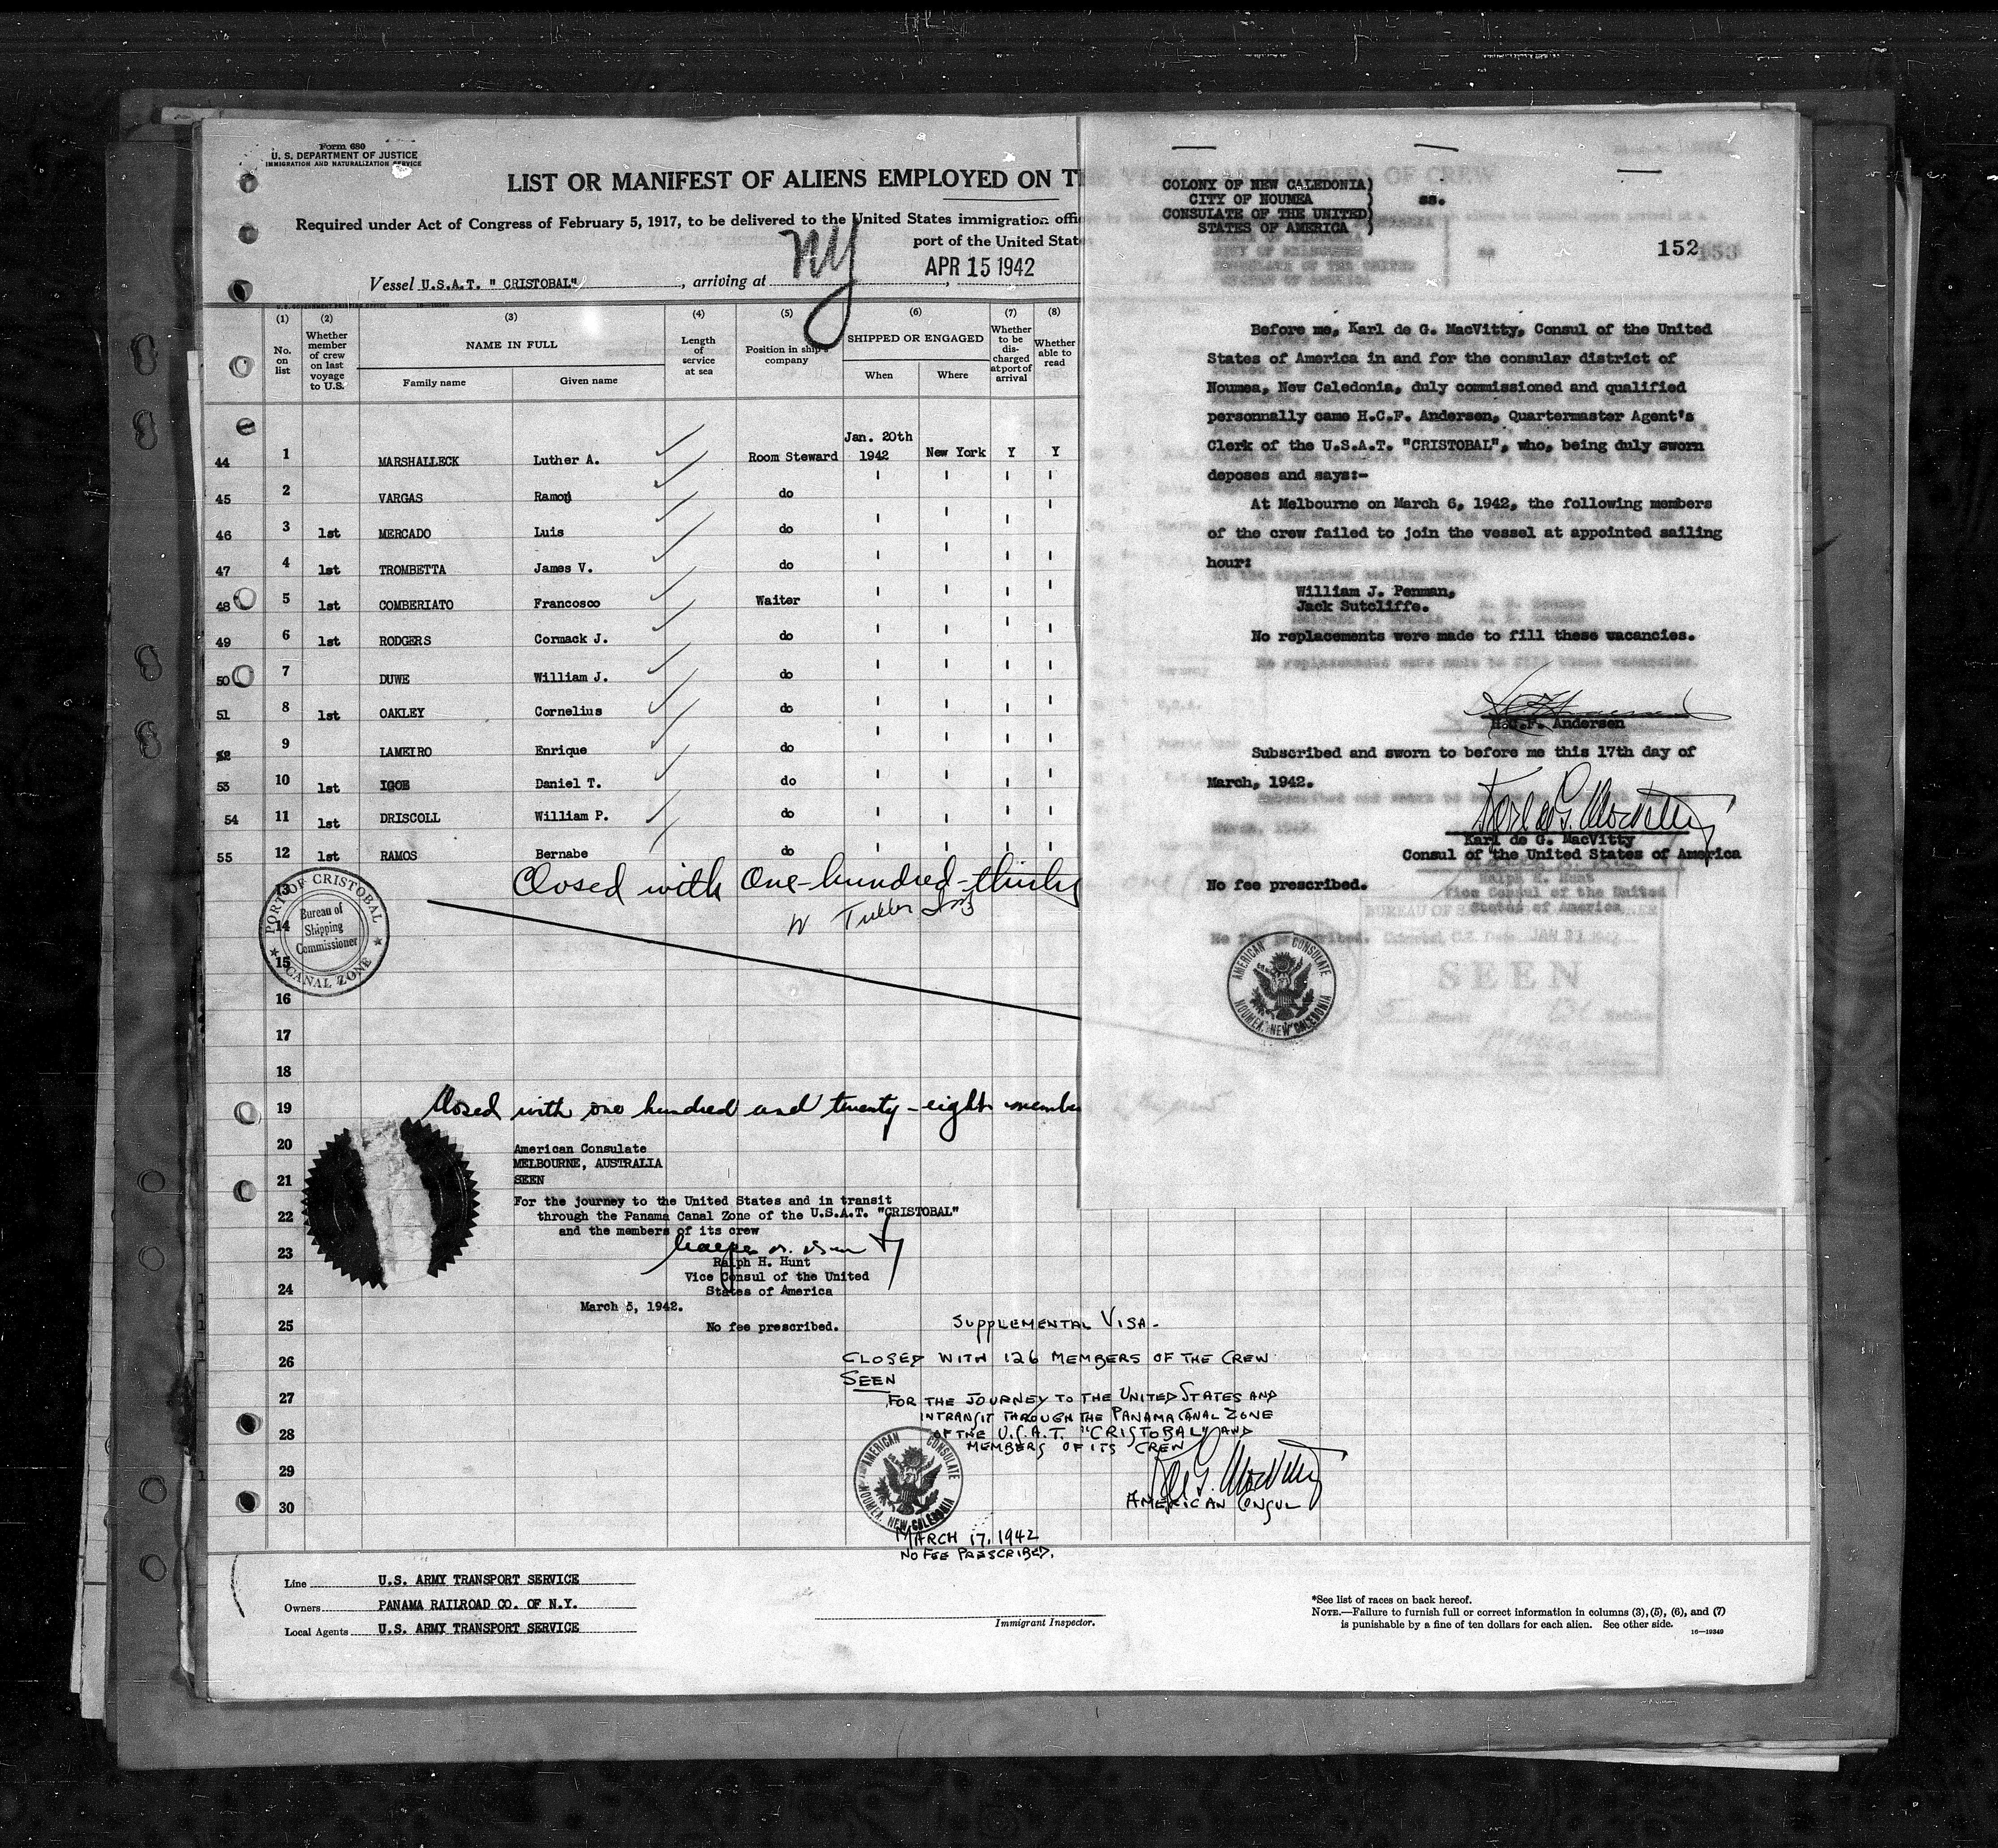 Form 680
U. S. DEPARTMENT OF JUSTICE
IMMIGRATION AND NATURALIZATION SERVICE
LIST OR MANIFEST OF ALIENS EMPLOYED ON T
Required under Act of Congress of February 5, 1917, to be delivered to the United States immigration offi
port of the United Stat
NY
APR 15 1942
Vessel U.S.A.T. " CRISTOBAL" , arriving at
(1) (2) (3) (4) (5) (6) (7) (8)
No. on list
Whether member of crew on last voyage to U.S.
NAME IN FULL
Family name Given name
Length of service at sea
Position in ship's company
SHIPPED OR ENGAGED
When Where
Whether to be discharged at port of arrival
Whether able to read
44 1 MARSHALLECK Luther A. Room Steward Jan. 20th 1942 New York Y Y
45 2 VARGAS Ramon do " " " "
46 3 1st MERCADO Luis do " " " "
47 4 1st TROMBETTA James V. do " " " "
48 5 1st COMBERIATO Francosco Waiter " " " "
49 6 1st RODGERS Cormack J. do " " " "
50 7 DUWE William J. do " " " "
51 8 1st OAKLEY Cornelius do " " " "
52 9 LAMEIRO Enrique do " " " "
53 10 1st IGOE Daniel T. do " " " "
54 11 1st DRISCOLL William P. do " " " "
55 12 1st RAMOS Bernabe do " " " "
13
Closed with One-hundred-thirty
14
PORT OF CRISTOBAL
Bureau of
Shipping
Commissioner
CANAL ZONE
15
16
17
18
19
Closed with one hundred and twenty-eight membe
20
American Consulate
MELBOURNE, AUSTRALIA
21
SEEN
For the journey to the United States and in transit
22
through the Panama Canal Zone of the U.S.A.T. "CRISTOBAL"
and the members of its crew
23
Ralph H. Hunt
Vice Consul of the United
24
States of America
March 5, 1942.
25
No fee prescribed.
SUPPLEMENTAL VISA.
26
CLOSED WITH 126 MEMBERS OF THE CREW
SEEN
27
FOR THE JOURNEY TO THE UNITED STATES AND
INTRANSIT THROUGH THE PANAMA CANAL ZONE
28
OF THE U.S.A.T. "CRISTOBAL" AND
MEMBERS OF ITS CREW
29
Karl de G. MacVitty
AMERICAN CONSUL
30
AMERICAN CONSULATE
NOUMEA, NEW CALEDONIA
MARCH 17, 1942
NO FEE PRESCRIBED.
Line U.S. ARMY TRANSPORT SERVICE
Owners PANAMA RAILROAD CO. OF N.Y.
Local Agents U.S. ARMY TRANSPORT SERVICE
Immigrant Inspector.
*See list of races on back hereof.
NOTE.—Failure to furnish full or correct information in columns (3), (5), (6), and (7)
is punishable by a fine of ten dollars for each alien. See other side.
16—19349
COLONY OF NEW CALEDONIA)
CITY OF NOUMEA )
CONSULATE OF THE UNITED)
STATES OF AMERICA )
ss.
152
153
Before me, Karl de G. MacVitty, Consul of the United
States of America in and for the consular district of
Noumea, New Caledonia, duly commissioned and qualified
personnally came H.C.F. Andersen, Quartermaster Agent's
Clerk of the U.S.A.T. "CRISTOBAL", who, being duly sworn
deposes and says:-
At Melbourne on March 6, 1942, the following members
of the crew failed to join the vessel at appointed sailing
hour:
William J. Penman,
Jack Sutcliffe.
No replacements were made to fill these vacancies.
H.C.F. Andersen
Subscribed and sworn to before me this 17th day of
March, 1942.
Karl de G. MacVitty
Karl de G. MacVitty
Consul of the United States of America
No fee prescribed.
Ralph H. Hunt
Vice Consul of the United
States of America
SEEN
AMERICAN CONSULATE
NOUMEA, NEW CALEDONIA